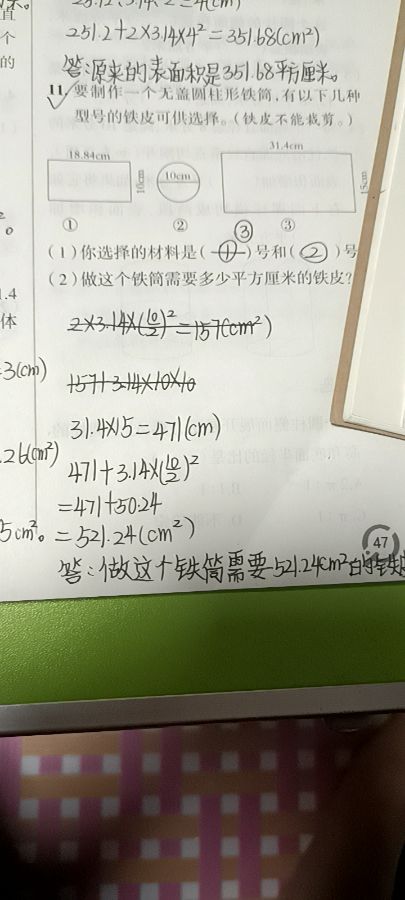 251.2+2×3.14×4²=351.68(cm²)
答:源来的表面积是351.68平方厘米。
11. 要制作一个无盖圆柱形铁筒,有以下几种
型号的铁皮可供选择。(铁皮不能裁剪。)
18.84cm
10cm
10cm
31.4cm
15cm
① ② ③
③
(1)你选择的材料是(①)号和(②)号
(2)做这个铁筒需要多少平方厘米的铁皮?
2×3.14×(10/2)²=157(cm²)
157+3.14×10×10
31.4×15=471(cm)
471+3.14×(10/2)²
=471+50.24
=521.24(cm²)
答:做这个铁筒需要521.24cm²的铁
47
直
个
的
1.4
体
=3(cm)
.26(cm²)
5cm²。